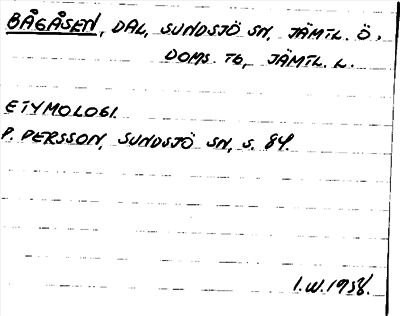 BÅGÅSEN, DAL, SUNDSJÖ SN, JÄMTL. Ö.
DOMS. TG, JÄMTL. L.
ETYMOLOGI.
P. PERSSON, SUNDSJÖ SN, S. 84.
I.W. 1958.